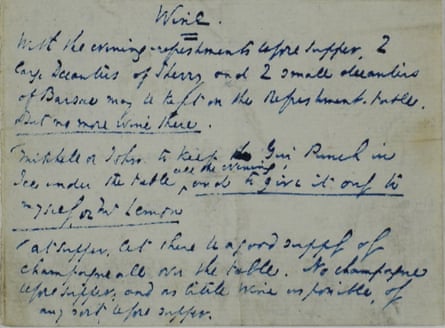 Wine.
With the evening refreshments before supper, 2
large Decanters of Sherry, and 2 small decanters
of Barsac may be kept on the Refreshment-table.
But no more wine there.
Mitchell or John to keep the Gin Punch in
Ice under the table, all the evening, and to give it only to
myself or Mr Lemon
At supper, let there be a good supply of
champagne all over the table. No champagne
before supper, and as little wine as possible, of
any sort before supper.